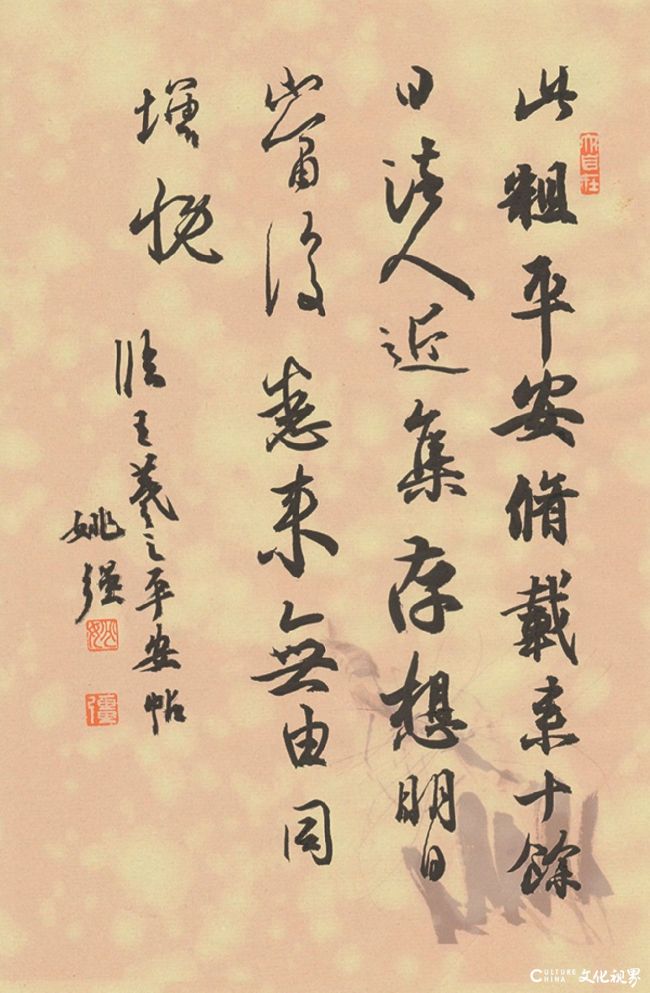 此粗平安脩載来十餘
日諸人近集存想明日
當復悉来無由同
增慨
臨王羲之平安帖
姚强
大自在
CULTURE
CHINA 文化视界